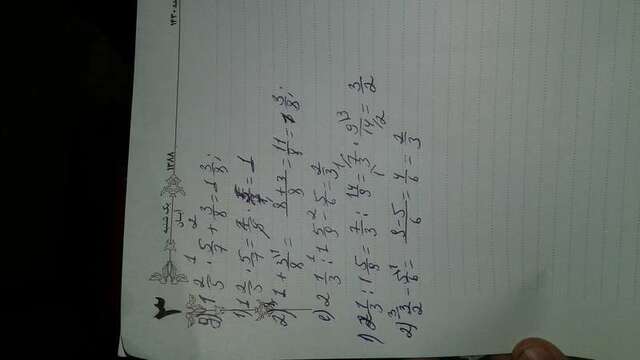 ۳ یک شنبه آبان ۱۳۸۸ ۱۴۳۰
g) 1 2/5 · 5/7 + 3/8 = 1 3/8;
1) 1 2/5 · 5/7 = 7/5 · 5/7 = 1
2) 1 + 3/8 = 8+3/8 = 11/8 = 1 3/8;
e) 2 1/3 : 1 5/9 - 5/6 = 2/3
1) 2 1/3 : 1 5/9 = 7/3 : 14/9 = 7/3 · 9/14 = 3/2
2) 3/2 - 5/6 = 9-5/6 = 4/6 = 2/3